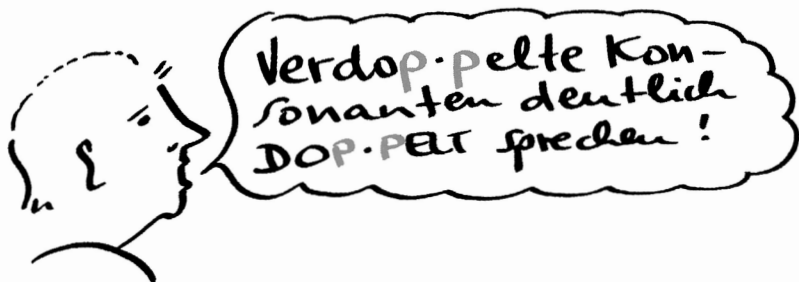 Verdop·pelte Kon-
sonanten deutlich
DOP·PELT sprechen!